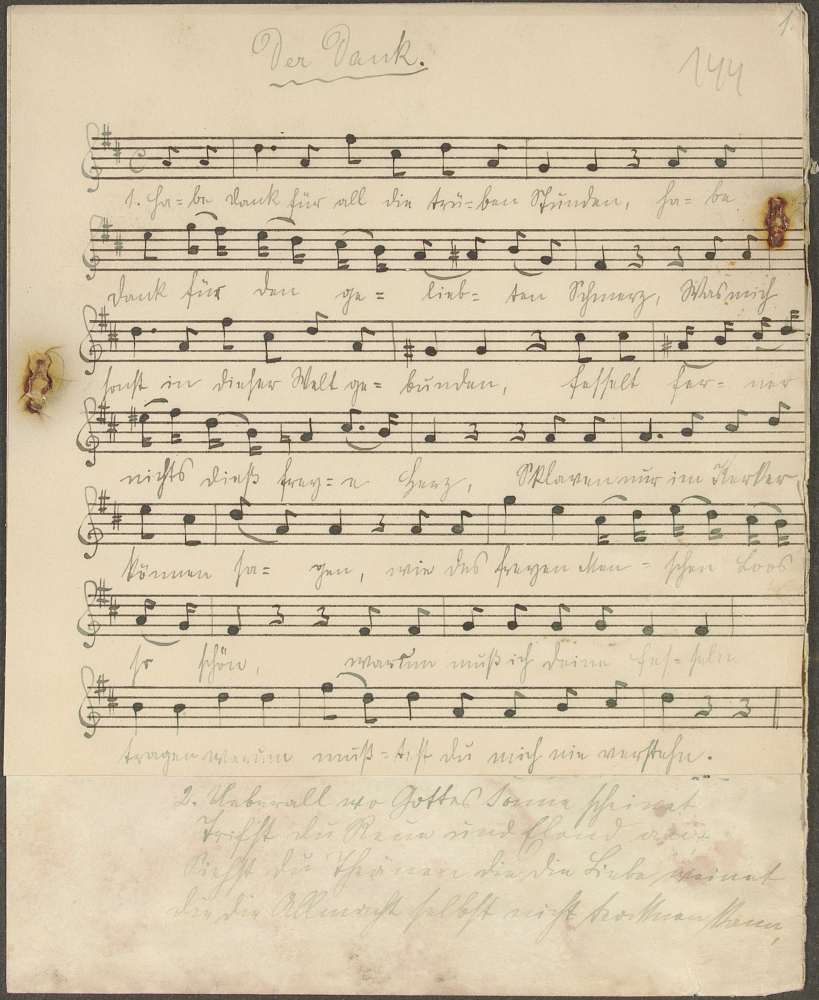 1.
Der Dank.
144
1. Ha=be Dank für all die trü=ben Stunden, ha=be
Dank für den ge= lieb= ten Schmerz, Was mich
sonst in dieser Welt ge= bunden, fesselt fer= ner
nichts dieß frey=e Herz, Sklaven nur im Kerker,
können sa= gen, wie des freyen Men= schen Loos
so schön, warum muß ich deine Fes=seln
tragen warum muß=test du mich nie verstehn.
2. Ueberall wo Gottes Sonne scheinet
Triffst du Reue und Elend an
Siehst du Thränen die die Liebe weinet
die die Allmacht selbst nicht trocknen kann,